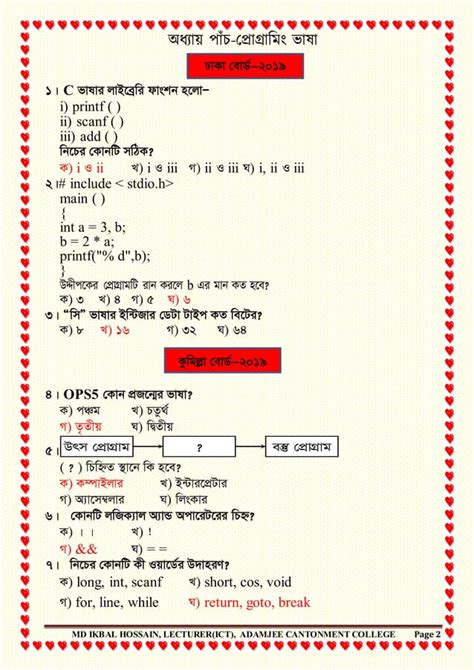 অধ্যায় পাঁচ-প্রোগ্রামিং ভাষা
ঢাকা বোর্ড–২০১৯
১। C ভাষার লাইব্রেরি ফাংশন হলো–
i) printf ( )
ii) scanf ( )
iii) add ( )
নিচের কোনটি সঠিক?
ক) i ও ii খ) i ও iii গ) ii ও iii ঘ) i, ii ও iii
২।# include < stdio.h>
main ( )
{
int a = 3, b;
b = 2 * a;
printf("% d",b);
}
উদ্দীপকের প্রোগ্রামটি রান করলে b এর মান কত হবে?
ক) ৩ খ) ৪ গ) ৫ ঘ) ৬
৩। “সি” ভাষার ইন্টিজার ডেটা টাইপ কত বিটের?
ক) ৮ খ) ১৬ গ) ৩২ ঘ) ৬৪
কুমিল্লা বোর্ড–২০১৯
৪। OPS5 কোন প্রজন্মের ভাষা?
ক) পঞ্চম খ) চতুর্থ
গ) তৃতীয় ঘ) দ্বিতীয়
৫। উৎস প্রোগ্রাম ? বস্তু প্রোগ্রাম
( ? ) চিহ্নিত স্থানে কি হবে?
ক) কম্পাইলার খ) ইন্টারপ্রেটার
গ) অ্যাসেম্বলার ঘ) লিংকার
৬। কোনটি লজিক্যাল অ্যান্ড অপারেটরের চিহ্ন?
ক) ।। খ) !
গ) && ঘ) = =
৭। নিচের কোনটি কী ওয়ার্ডের উদাহরণ?
ক) long, int, scanf খ) short, cos, void
গ) for, line, while ঘ) return, goto, break
MD IKBAL HOSSAIN, LECTURER(ICT), ADAMJEE CANTONMENT COLLEGE Page 2